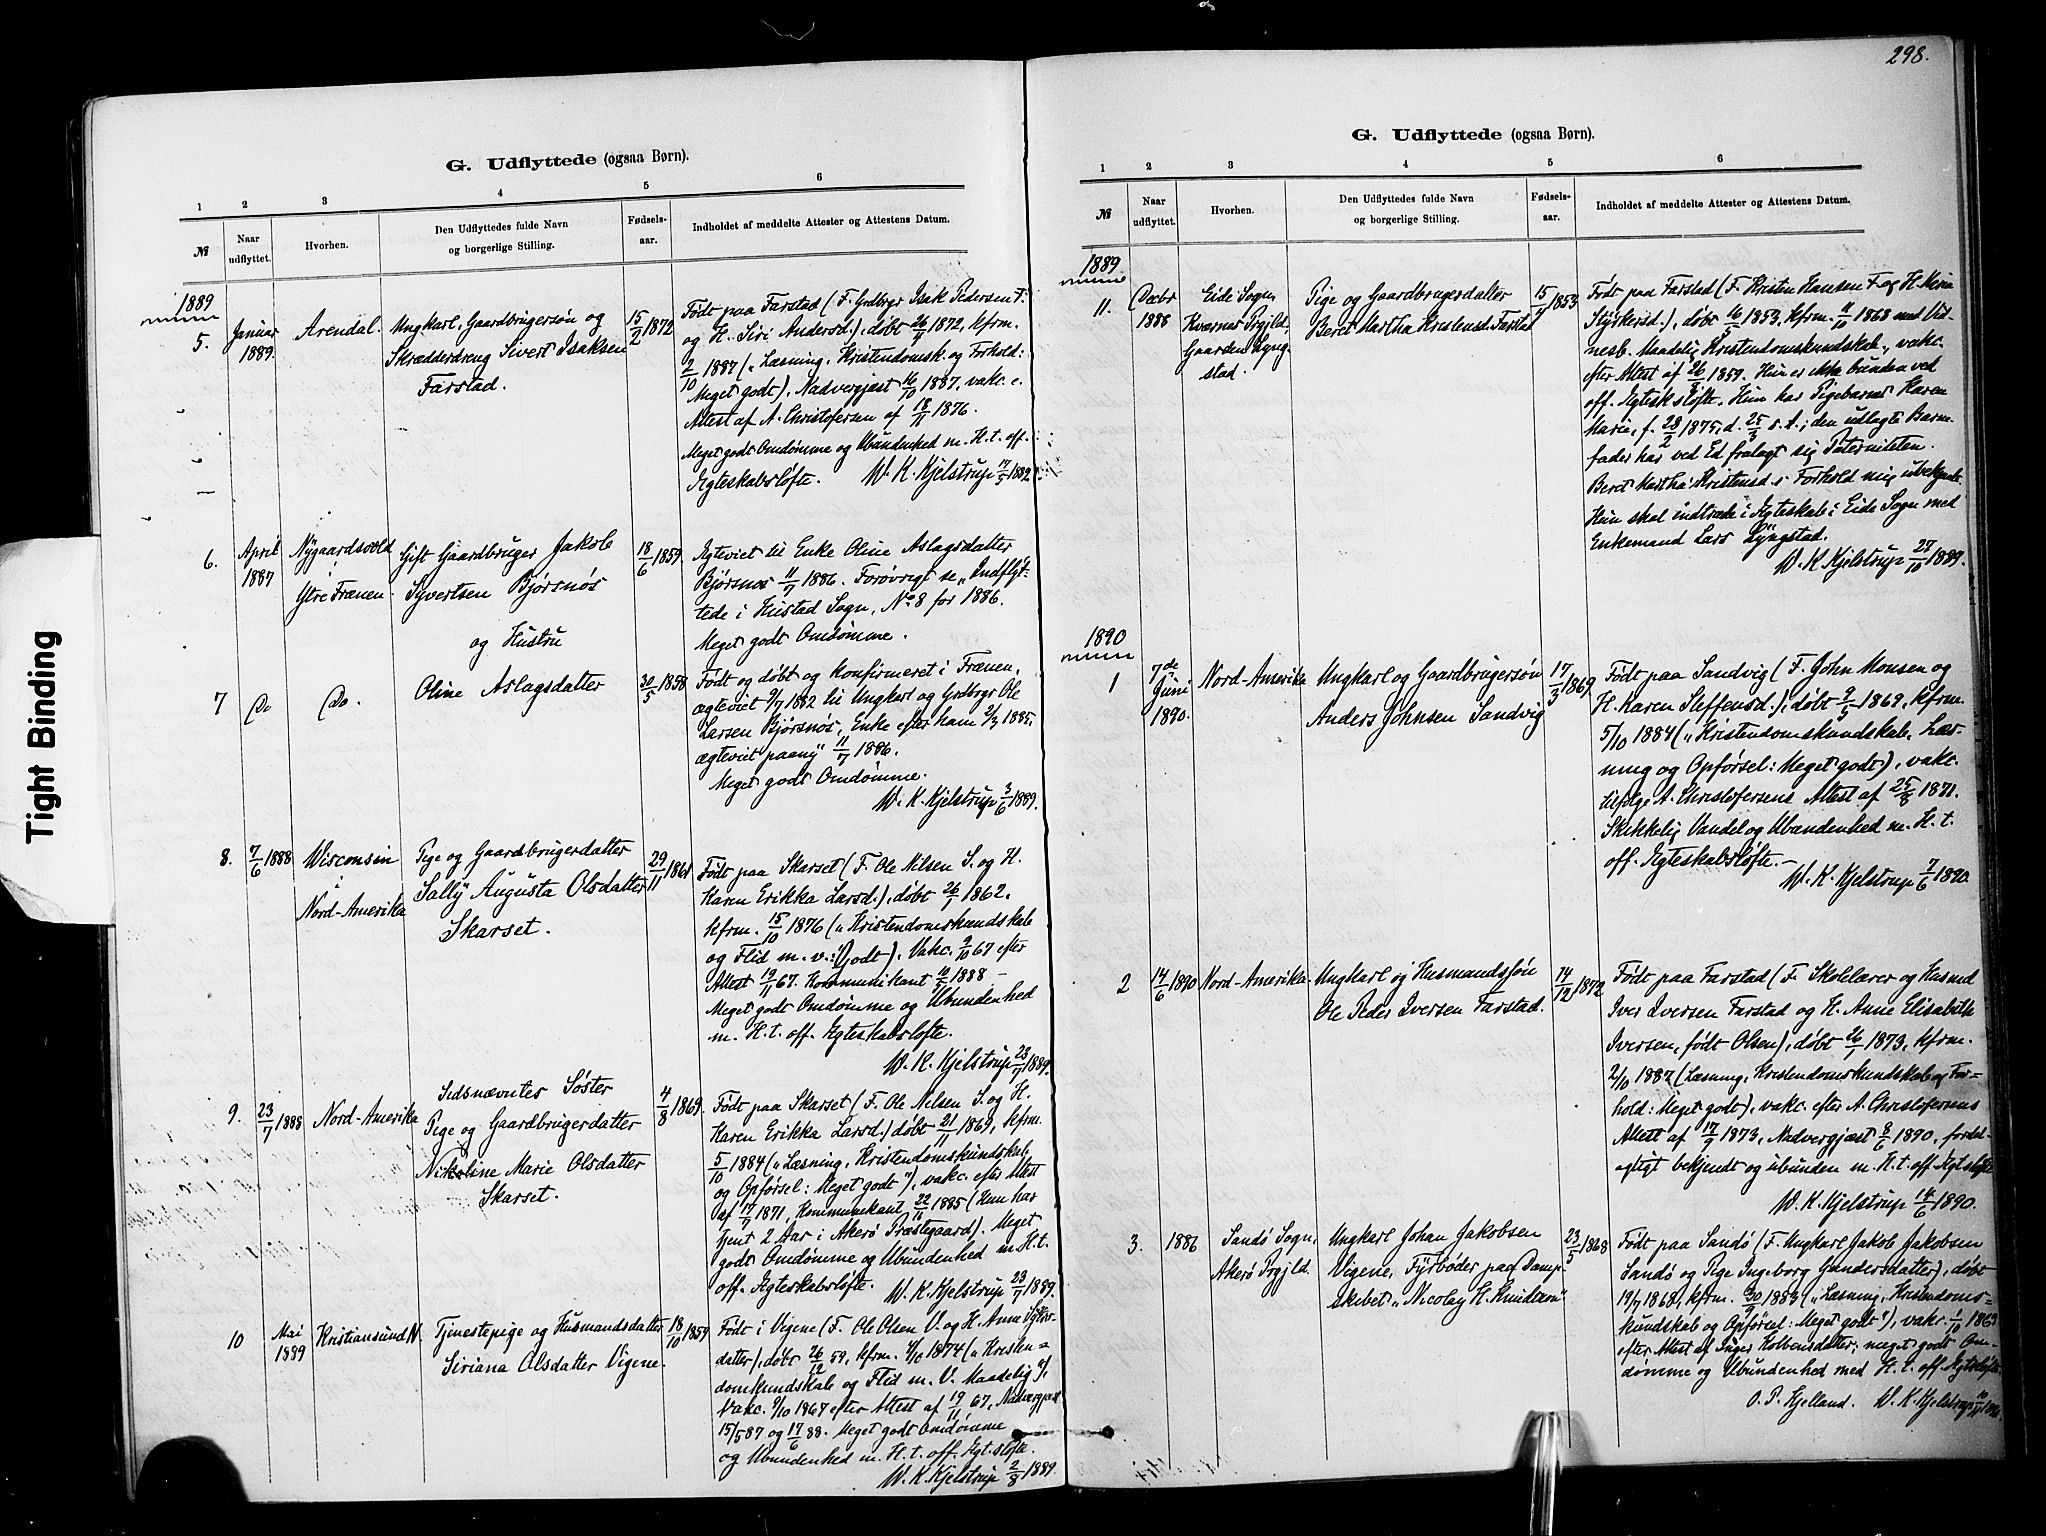 298.
Tight Binding
G. Udflyttede (ogsaa Børn).
1 2 3 4 5 6
№
Naar
udflyttet.
Hvorhen.
Den Udflyttedes fulde Navn
og borgerlige Stilling.
Fødsels-
aar.
Indholdet af meddelte Attester og Attestens Datum.
1889
5.
Januar
1889.
Arendal.
Ungkarl, Gaardbrugersøn og
Skrædderdreng Sivert Isaksen
Farstad.
15/2 1872
Født paa Farstad (F. Grdbrgr Isak Pedersen F.
og H. Siri Andersd.), døbt 26/4 1872, kfrm.
2/10 1887 („Læsning, Kristendomsk. og Forhold:
Meget godt), Nadvergjæst 16/10 1887, vakc. e.
Attest af A. Christofersen af 18/11 1876.
Meget godt Omdømme og Ubundenhed m. H. t. off.
Ægteskabsløfte. W. K. Kjelstrup 17/5 1889.
6.
April
1887
Nygaardsvold
Ytre Frænen.
Gift Gaardbruger Jakob
Syvertsen Bjørsnøs
og Hustru
18/6 1859
Ægteviet til Enke Oline Aslagsdatter
Bjørsnøs 11/7 1886. Forøvrigt se „Indflyt-
tede i Hustad Sogn, No 8 for 1886.
Meget godt Omdømme.
7
Do
Do.
Oline Aslagsdatter
30/5 1858
Født og døbt og konfirmeret i Frænen,
ægteviet 9/7 1882 til Ungkarl og Grdbrgr Ole
Larsen Bjørsnøs, Enke efter ham 2/3 1885,
ægteviet paany 11/7 1886.
Meget godt Omdømme.
W. K. Kjelstrup 3/6 1889.
8.
7/6 1888
Wisconsin
i
Nord-Amerika
Pige og Gaardbrugerdatter
Sally Augusta Olsdatter
Skarset.
29/11 1861
Født paa Skarset (F. Ole Nilsen S. og H.
Karen Erikka Larsd.), døbt 26/1 1862,
kfrm. 15/10 1876 („Kristendomskundskab
og Flid m. v.: Godt), Vakc. 9/10 67 efter
Attest 19/11 67. Kommunikant 1888 –
Meget godt Omdømme og Ubundenhed
m. H. t. off. Ægteskabsløfte.
W. K. Kjelstrup 23/7 1889.
9.
23/7 1888
Nord-Amerika
Sidsnævntes Søster
Pige og Gaardbrugerdatter
Nikoline Marie Olsdatter
Skarset.
4/8 1869
Født paa Skarset (F. Ole Nilsen S. og H.
Karen Erikka Larsd.) døbt 21/11 1869, kfrm.
5/10 1884 („Læsning, Kristendomskundskab
og Opførsel: Meget godt"), vakc. efter Attest
af 17/7 1871, Kommunikant 22/11 1885 (Hun har
tjent 2 Aar i Akerø Præstegaard). Meget
godt Omdømme og Ubundenhed m. H. t.
off. Ægteskabsløfte. W. K. Kjelstrup 23/7 1889.
10
Mai
1889
Kristiansund N.
Tjenestepige og Husmandsdatter
Siriana Olsdatter Vigene.
18/10 1859
Født i Vigene (F. Ole Olsen V. og H. Anne
datter), døbt 26/12 59, kfrm. 4/10 1874 („Kristen=
domskundskab og Flid m. V. Maadelig"),
Vakc. 9/10 1867 efter Attest af 19/11 67, Nadvergjæst
15/5 87 og 17/6 88. Meget godt Omdømme
og Ubundenhed m. H. t. off. Ægt.sløfte.
W. K. Kjelstrup 2/8 1889.
G. Udflyttede (ogsaa Børn).
1 2 3 4 5 6
№
Naar
udflyttet.
Hvorhen.
Den Udflyttedes fulde Navn
og borgerlige Stilling.
Fødsels-
aar.
Indholdet af meddelte Attester og Attestens Datum.
1889
11.
Decbr
1888
Eide Sogn,
Kvernes Prgjld.
Gaarden Lyng-
stad.
Pige og Gaardbrugerdatter
Beret Martha Kristensd. Farstad
1853
Født paa Farstad (F. Kristen Hansen F. og H. Maria
Styrkersd.), døbt 26/5 1853, kfrm. 11/10 1868 med Vid-
nesb. Maadelig Kristendomskundskab., vakc.
efter Attest af 26/9 1859. Hun er ikke bunden ved
off. Ægtesk.sløfte. Hun har Pigebarnet Karen
Marie, f. 28/2 1875, d. 25/3 s. A.; den udlagte Barne-
fader har ved Ed fralagt sig Paterniteten.
Beret Martha Kristensd.s Forhold mig ubekjendt.
Hun skal indtræde i Ægteskab i Eide Sogn med
Enkemand Lars Lyngstad.
W. K. Kjelstrup 27/10 1889.
1890
1
7de
Juni
1890.
Nord-Amerika
Ungkarl og Gaardbrugersøn
Anders Johnsen Sandvig
17/3 1869
Født paa Sandvig (F. John Monsen og
H. Karen Steffensd.), døbt 9/5 1869, kfrm.
5/10 1884 („Kristendomskundskab, Læs-
ning og Opførsel: Meget godt), vakc.
tilfølge A. Christofersens Attest af 25/8 1871.
Skikkelig Vandel og Ubundenhed m. H. t.
off. Ægteskabsløfte.–
W. K. Kjelstrup 7/6 1890.
2
14/6 1890
Nord-Amerika.
Ungkarl og Husmandssøn
Ole Peder Iversen Farstad.
14/12 1872
Født paa Farstad (F. Skolelærer og Husmd
Iver Iversen Farstad og H. Anne Elisabeth
Iversen, født Olsen), døbt 26/1 1873, kfrm.
2/10 1887 (Læsning, Kristendomskundskab og For=
hold: Meget godt), vakc. efter A. Christofersens
Attest af 17/9 1873, Nadvergjæst 8/6 1890, fordel-
agtigt bekjendt og ubunden m. H. t. off. Ægtsløfte
W. K. Kjelstrup 14/6 1890.
3.
1886
Sandø Sogn,
Akerø Prgjld.
Ungkarl Johan Jakobsen
Vigene, Fyrbøder paa Damp-
skibet „Nicolay H. Knudtzon"
23/5 1868
Født paa Sandø (F. Ungkarl Jakob Jakobsen
Sandø og Pige Ingeborg Gundersdatter), døbt
19/7 1868, kfrm. 30/9 1883 („Læsning, Kristendoms=
kundskab og Opførsel: Meget godt"), vakc. 1/10 1869
efter Attest af Inger Kolbensdatter; meget godt Om-
dømme og Ubundenhed med H. t. off. Ægtsløfte.
O. P. Hjelland. W. K. Kjelstrup